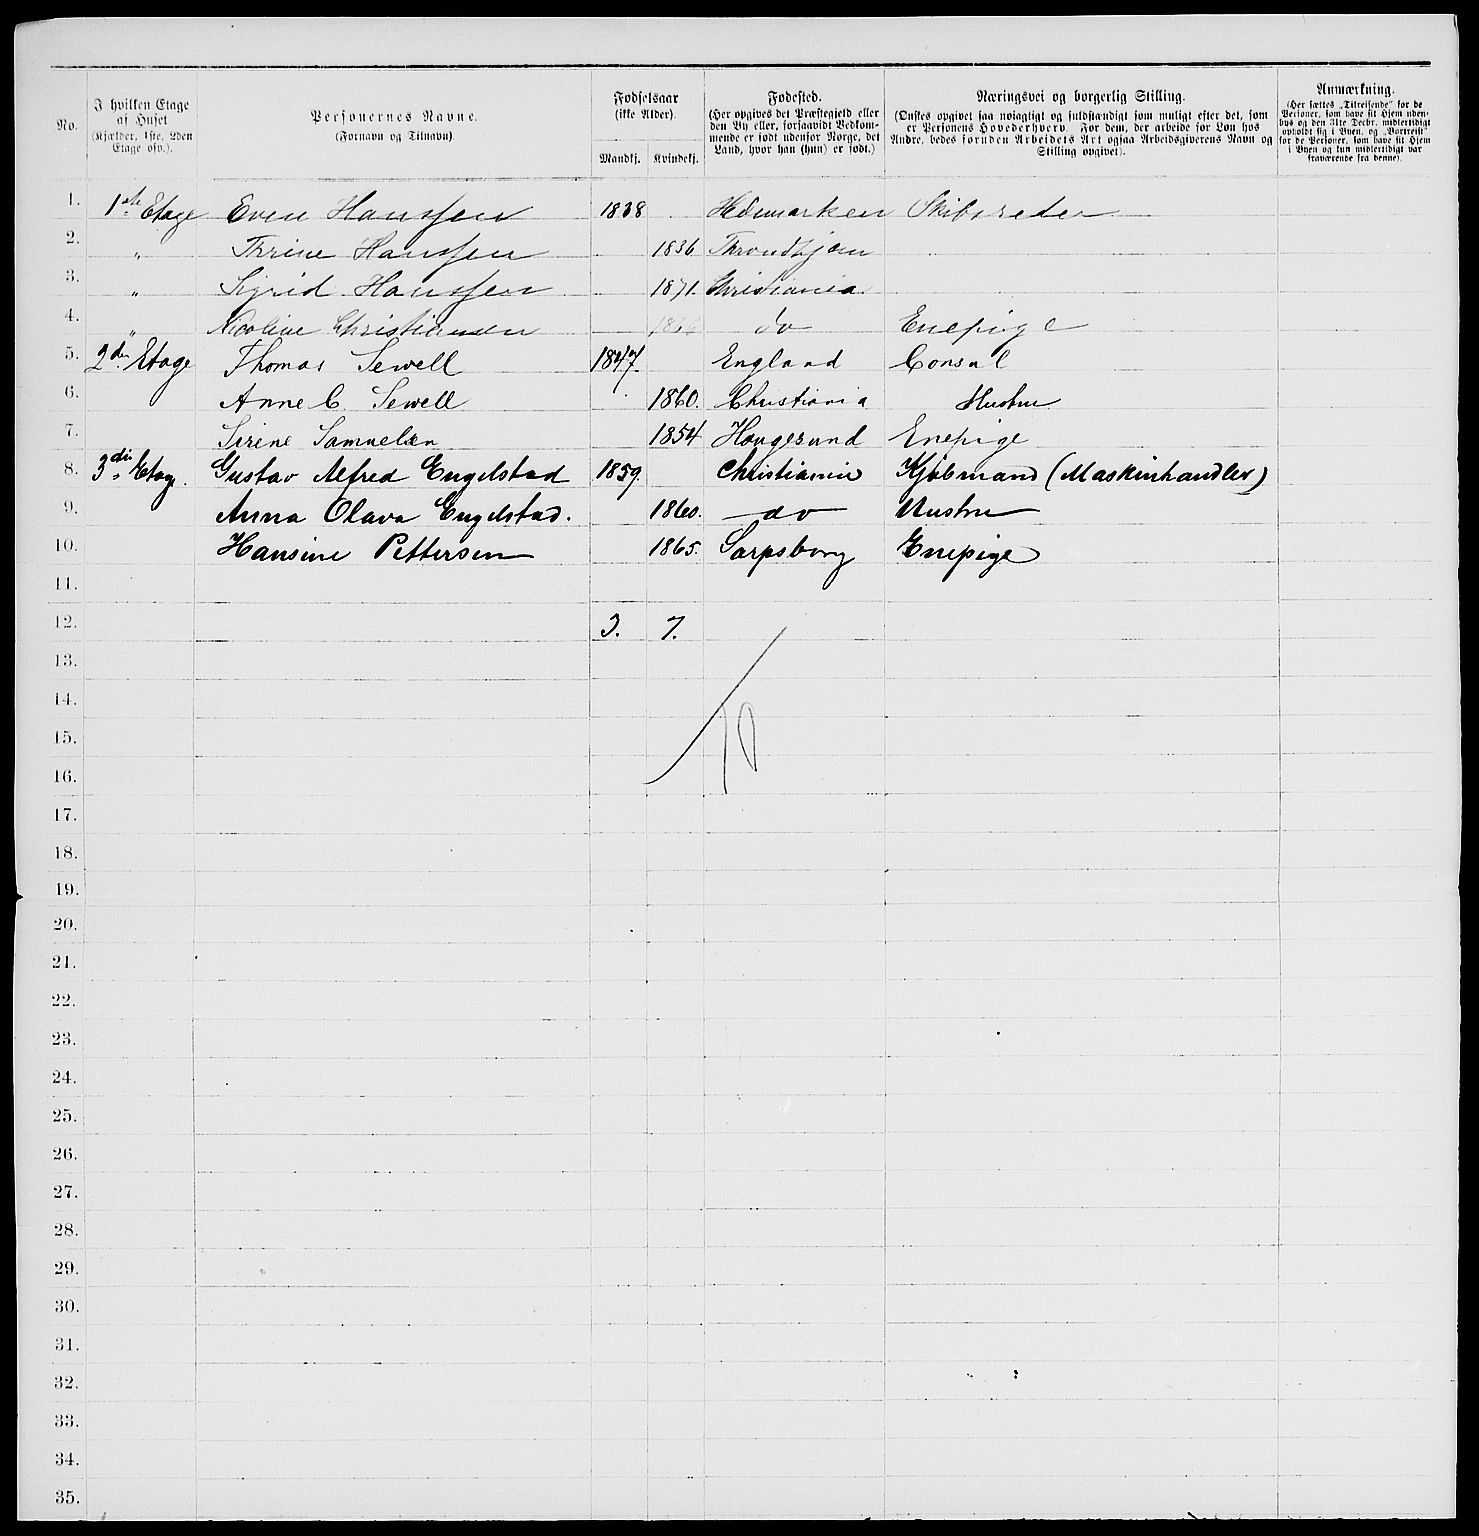 No.
I hvilken Etage af Huset (Kjælder, 1ste, 2den Etage osv.).
Personernes Navne. (Fornavn og Tilnavn).
Fødselsaar (ikke Alder). Mandkj. Kvindekj.
Fødested. (Her opgives det Præstegjeld eller den By eller, forsaavidt Vedkommende er født udenfor Norge, det Land, hvor han (hun) er født.)
Næringsvei og borgerlig Stilling. (Ønskes opgivet saa nøiagtigt og fuldstændigt som muligt efter det, som er Personens Hovederhverv. For dem, der arbeide for Løn hos Andre, bedes foruden Arbeidets Art ogsaa Arbeidsgiverens Navn og Stilling opgivet).
Anmærkning. (Her sættes „Tilreisende" for de Personer, som have sit Hjem udenbys og den 31te Decbr. midlertidigt opholdt sig i Byen, og „Bortreist" for de Personer, som have sit Hjem i Byen og kun midlertidigt var fraværende fra denne).
1. 1ste Etage Even Hanssen 1838 Hedemarken Skibsreder
2. " Thrine Hanssen 1836 Throndhjem
3. " Sigrid Hanssen 1871. Christiania
4. " Nicoline Christiansen do Enepige
5. 2den Etage Thomas Sewell 1847. England Consul
6. Anne C. Sewell 1860. Christiania Hustru
7. Sirene Samuelsen 1854 Haugesund Enepige
8. 3die Etag. Gustav Alfred Engelstad 1859. Christiania Kjøbmand (Maskinhandler)
9. Anna Olava Engelstad. 1860. do Hustru
10. Hansine Pettersen 1865. Sarpsborg Enepige
11.
12. 3. 7.
13.
14.
15. 10
16.
17.
18.
19.
20.
21.
22.
23.
24.
25.
26.
27.
28.
29.
30.
31.
32.
33.
34.
35.